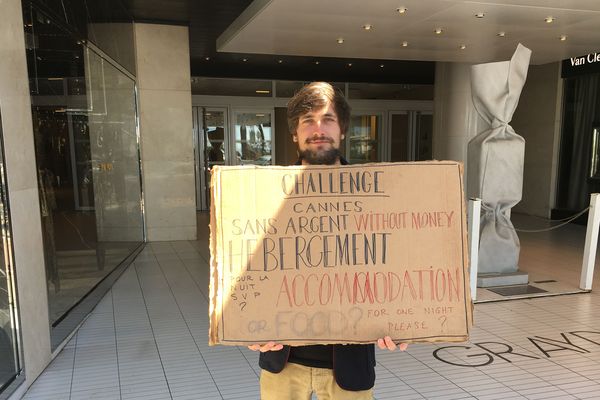 CHALLENGE
CANNES
SANS ARGENT WITHOUT MONEY
HEBERGEMENT
POUR LA
NUIT
SVP
?
ACCOMMODATION
FOR ONE NIGHT
PLEASE ?
OR FOOD?
Van Cle
GRAY